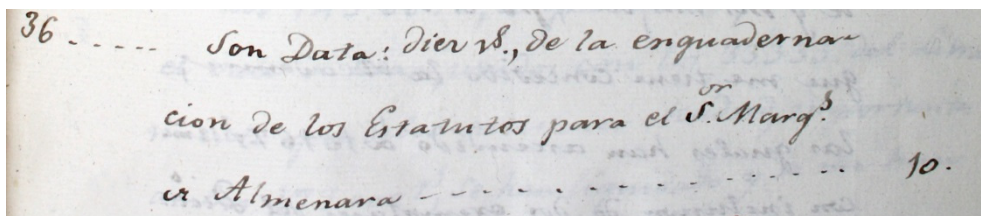 36 ..... Son Data: diez rs., de la enquaderna-
cion de los Estatutos para el Sor. Marqs.
de Almenara - - - - - - - - - - - - - 10.